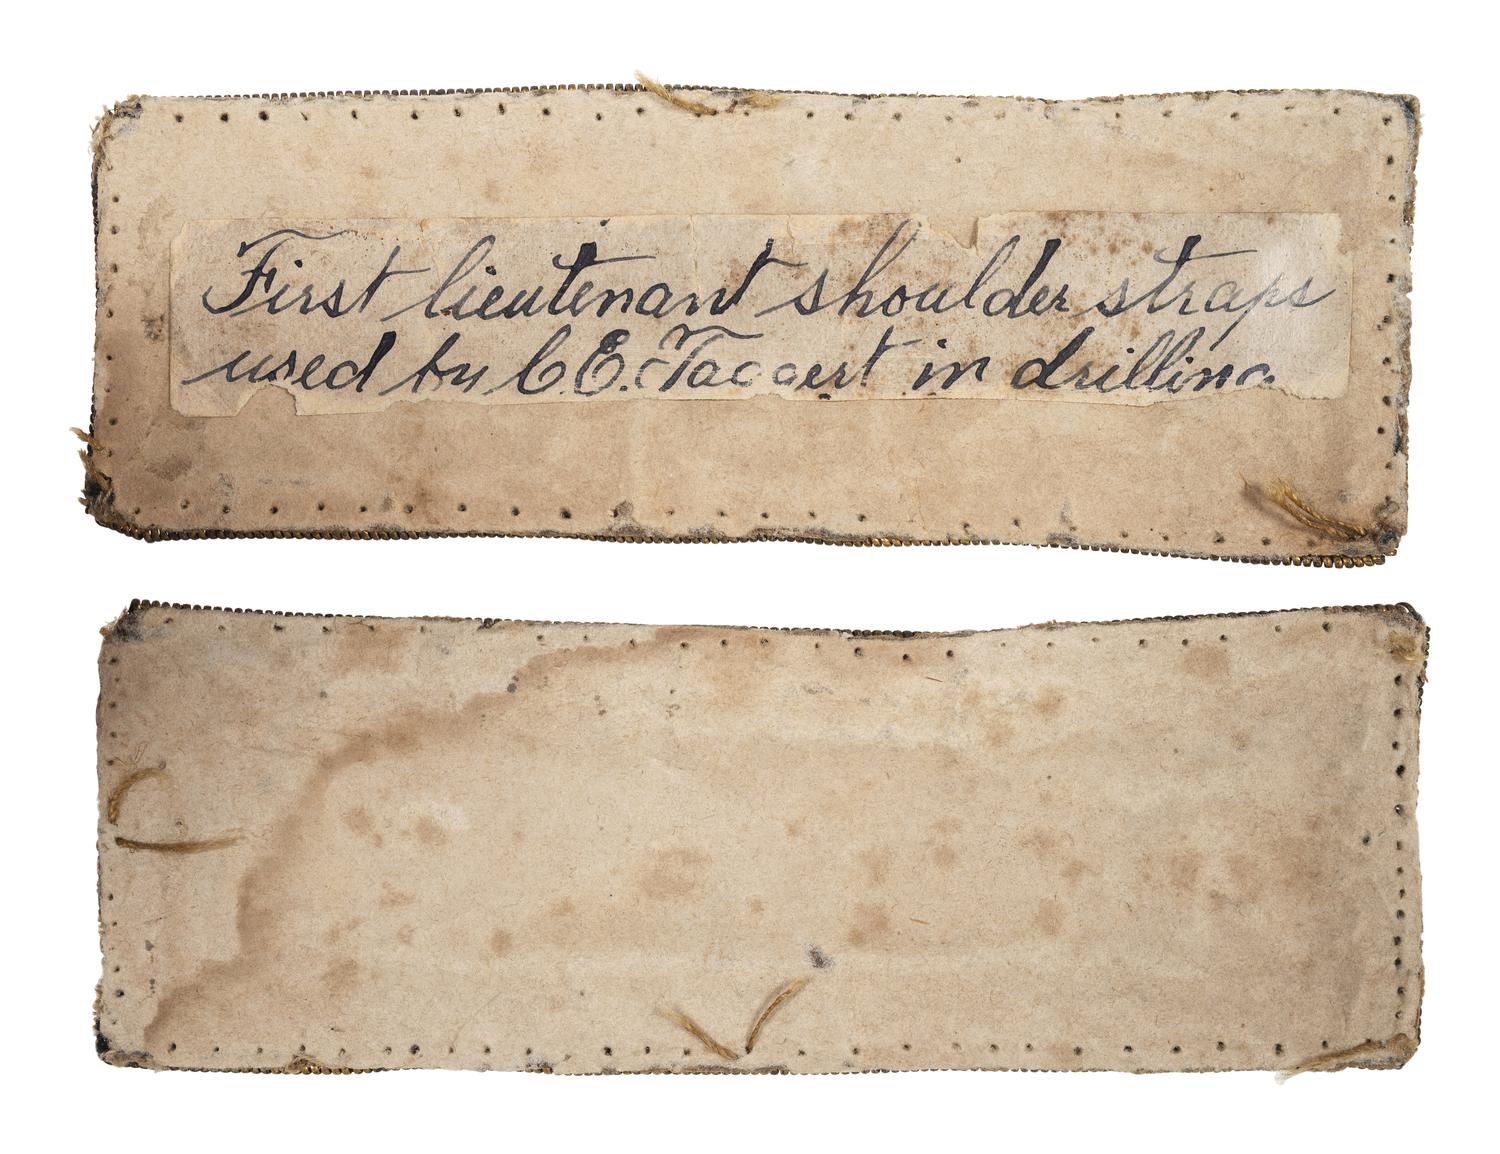 First lieutenant shoulder straps
used by C.E. Taggert in drilling